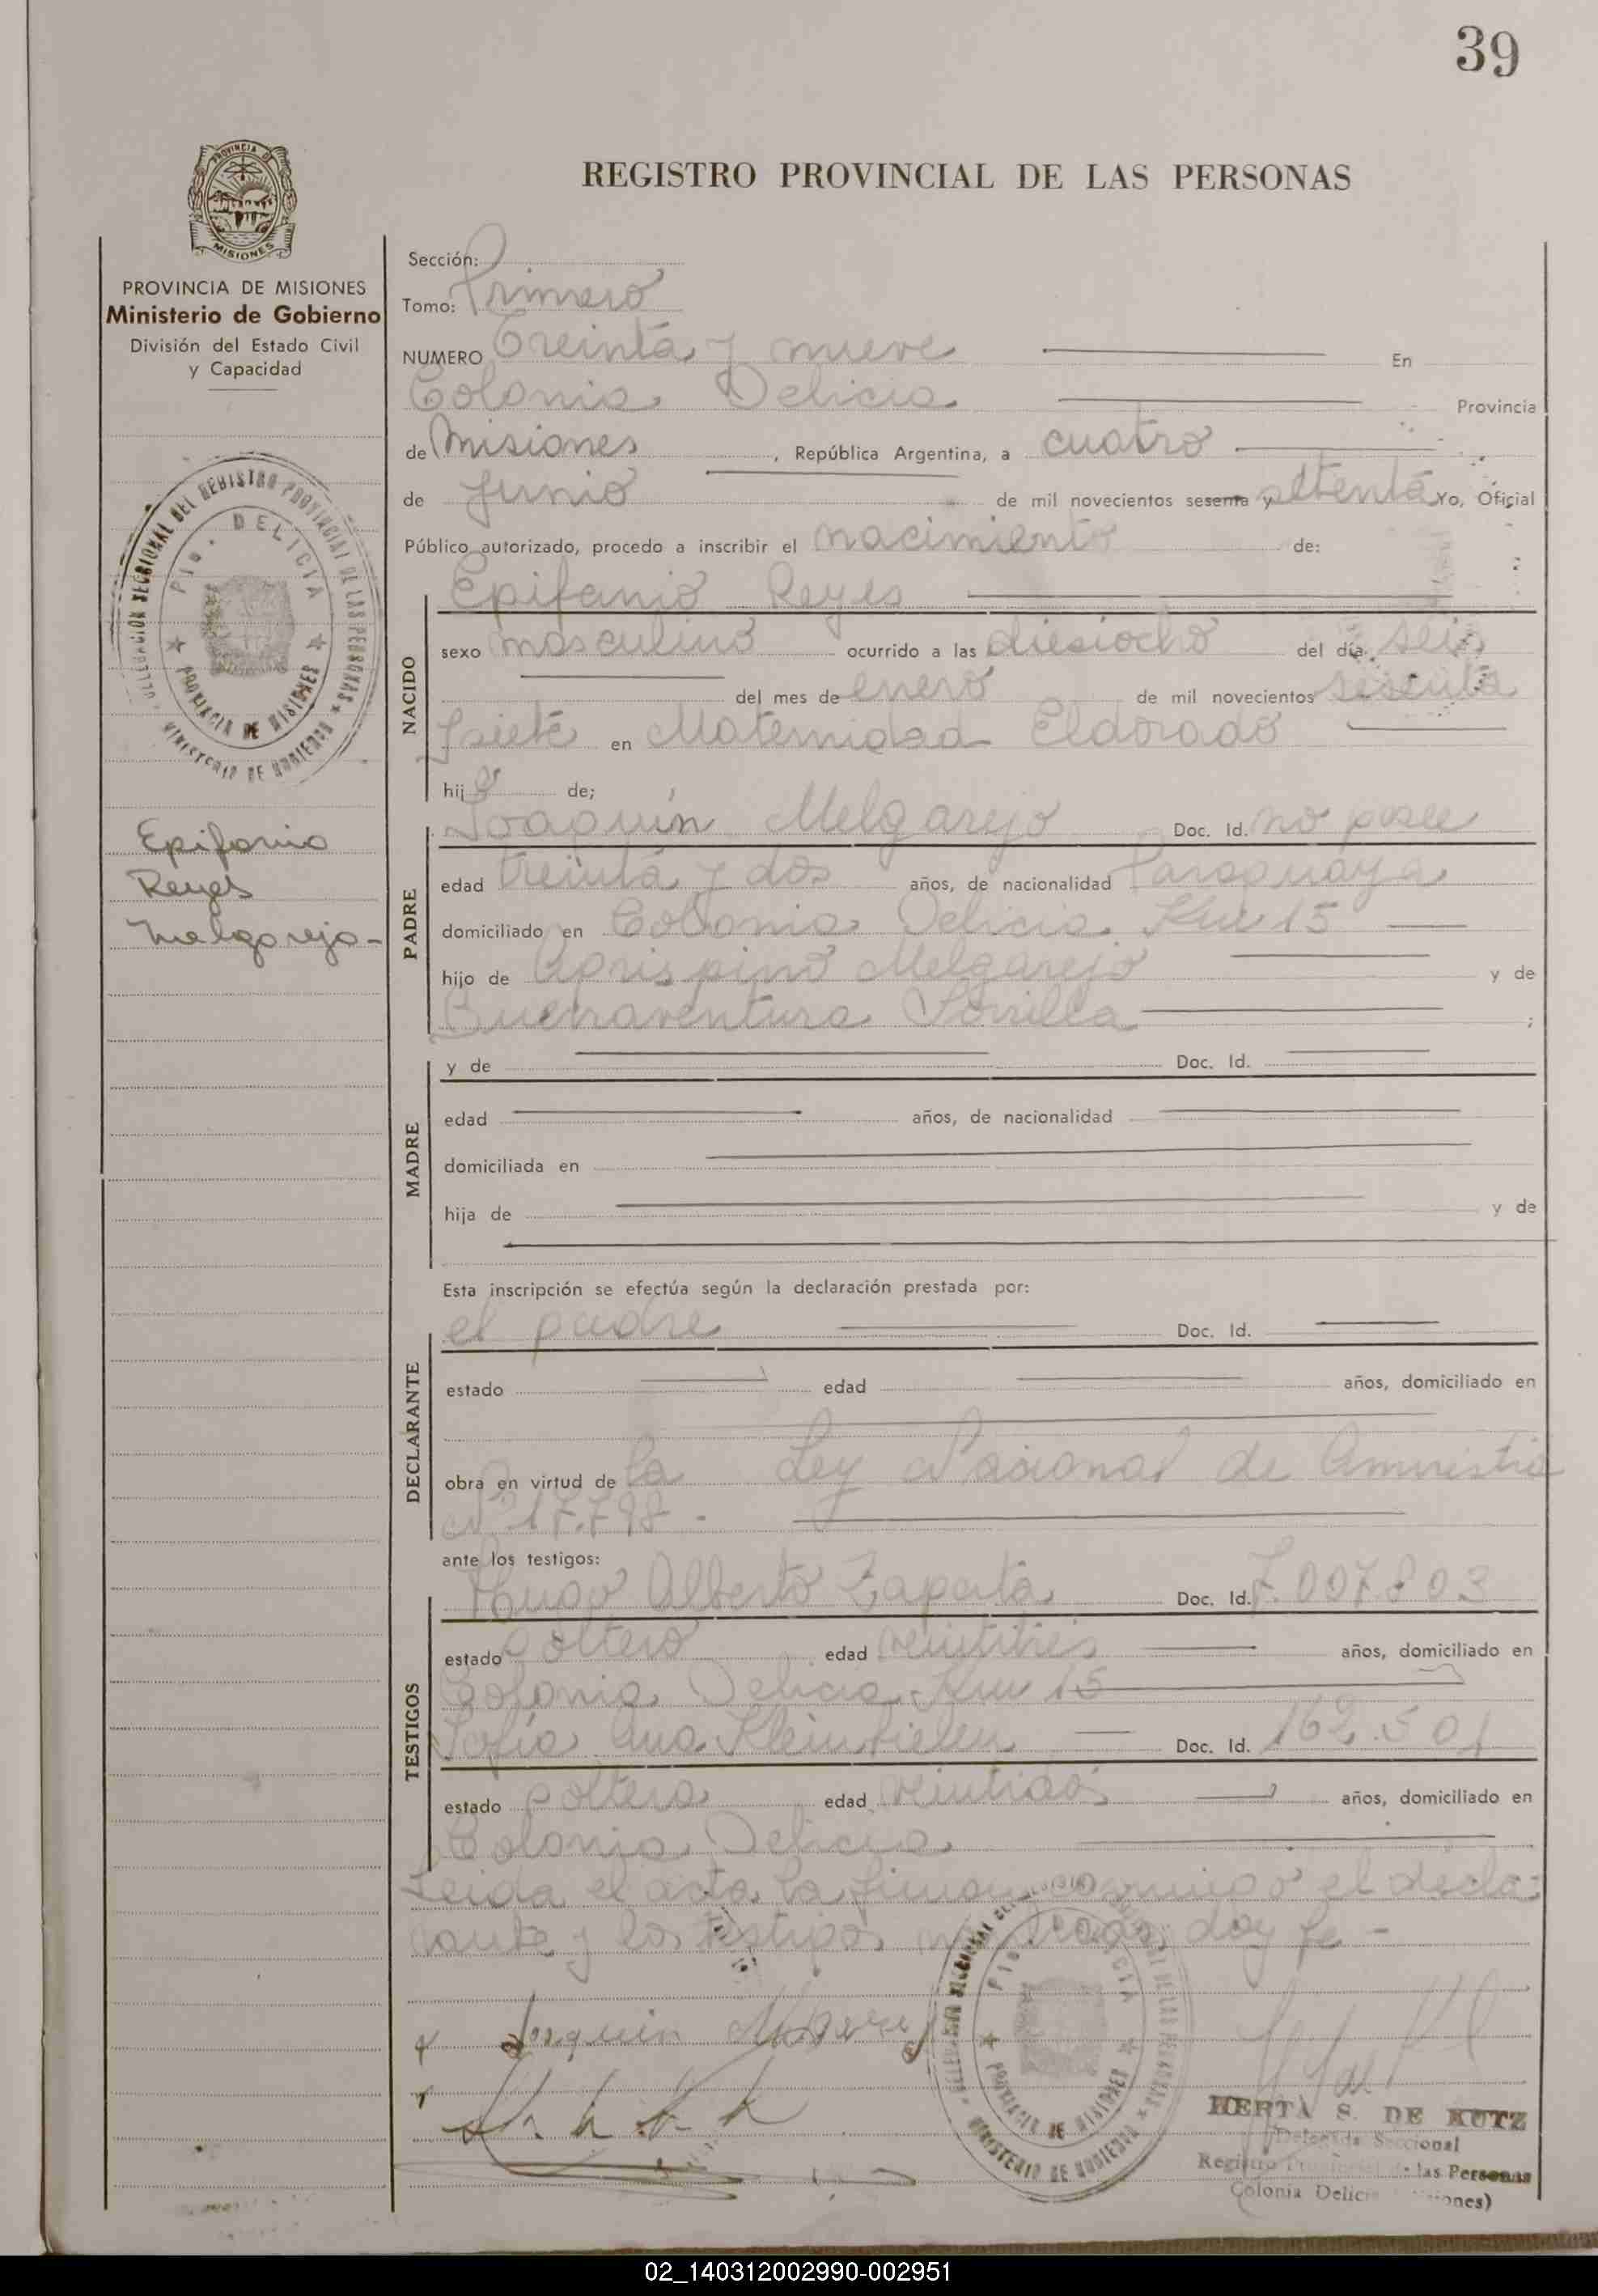 39
REGISTRO PROVINCIAL DE LAS PERSONAS
PROVINCIA DE MISIONES
Ministerio de Gobierno
División del Estado Civil
y Capacidad
Epifanio
Reyes
Melgarejo-
Sección:
Tomo: Primero
NUMERO Treinta y nueve En
Colonia Delicia Provincia
de Misiones, República Argentina, a cuatro
de Junio de mil novecientos sesenta y setenta Yo, Oficial
Público autorizado, procedo a inscribir el nacimiento de:
Epifanio Reyes
NACIDO
sexo masculino ocurrido a las diesiocho del día seis
del mes de enero de mil novecientos sesenta
y siete en Maternidad Eldorado
hijo de;
PADRE
Joaquín Melgarejo Doc. Id. no posee
edad treinta y dos años, de nacionalidad Paraguaya
domiciliado en Colonia Delicia Km 15
hijo de Melgarejo y de
Buenaventura ;
MADRE
y de Doc. Id.
edad años, de nacionalidad
domiciliada en
hija de y de
Esta inscripción se efectúa según la declaración prestada por:
DECLARANTE
el padre Doc. Id.
estado edad años, domiciliado en
obra en virtud de la Ley Nacional de Amnistia
Nº 17.798.-
ante los testigos:
TESTIGOS
Hugo Alberto Zapata Doc. Id. 7.007.803
estado soltero edad veintitres años, domiciliado en
Colonia Delicia Km 15
Sofía Ana Doc. Id. 162.501
estado soltera edad veintidos años, domiciliado en
Colonia Delicia
Leida el acta la firman conmigo el decla-
rante y los testigos doy fe-
Joaquin
HERTA S. DE KUTZ
Delegada Seccional
Registro Provincial de las Personas
Colonia Delicia (Misiones)
DELEGACION SECCIONAL DEL REGISTRO PROVINCIAL DE LAS PERSONAS
MINISTERIO DE GOBIERNO
Pto. DELICIA
PROVINCIA DE MISIONES
02_140312002990-002951